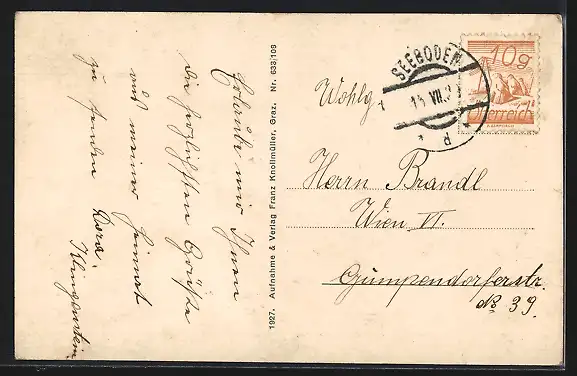 Erlaube mir Ihnen
die herzlichsten Grüße
aus meiner Heimat
zu senden Dora
Klingenstein
1927. Aufnahme & Verlag Franz Knollmüller, Graz. Nr. 633/106
SEEBODEN
10g
Österreich
Wohlg
Herrn Brandl
Wien VI.
Gumpendorferstr.
No 39.